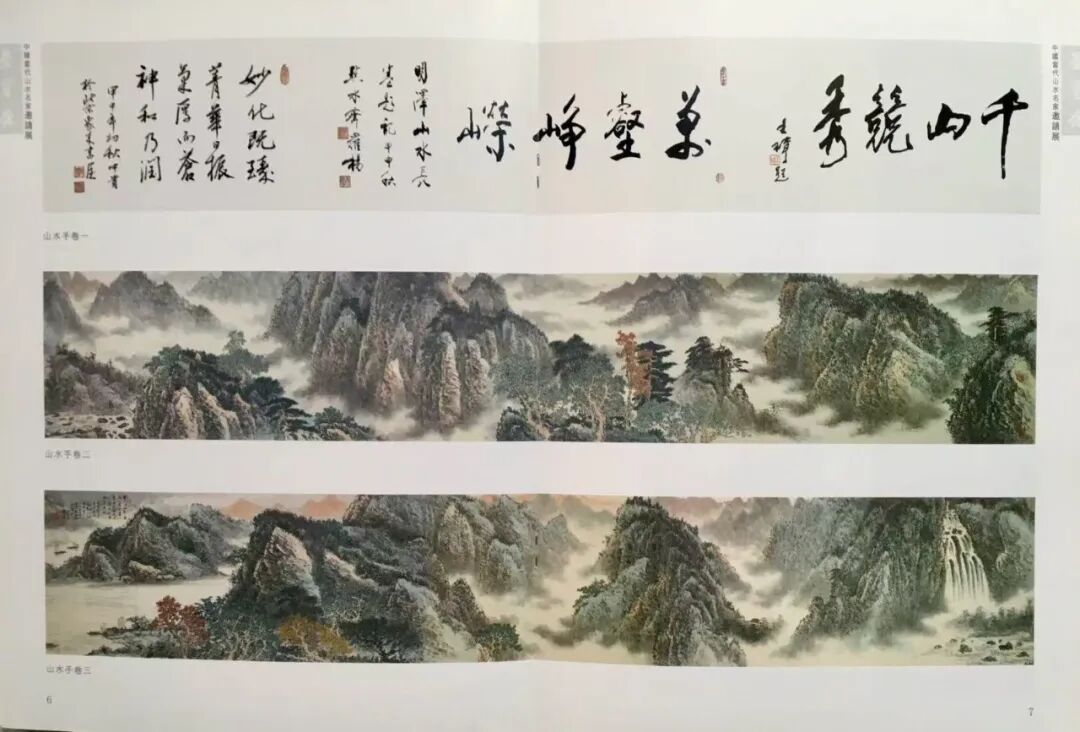 中國當代山水名家邀請展
中國當代山水名家邀請展
千山競秀
萬壑崢嶸
明澤山水長
卷題記甲申秋
點水齋羅楊
妙化既臻
菁華日振
氣厚而蒼
神和乃潤
甲申年初秋仲貴
山水手卷一
山水手卷二
山水手卷三
6
7